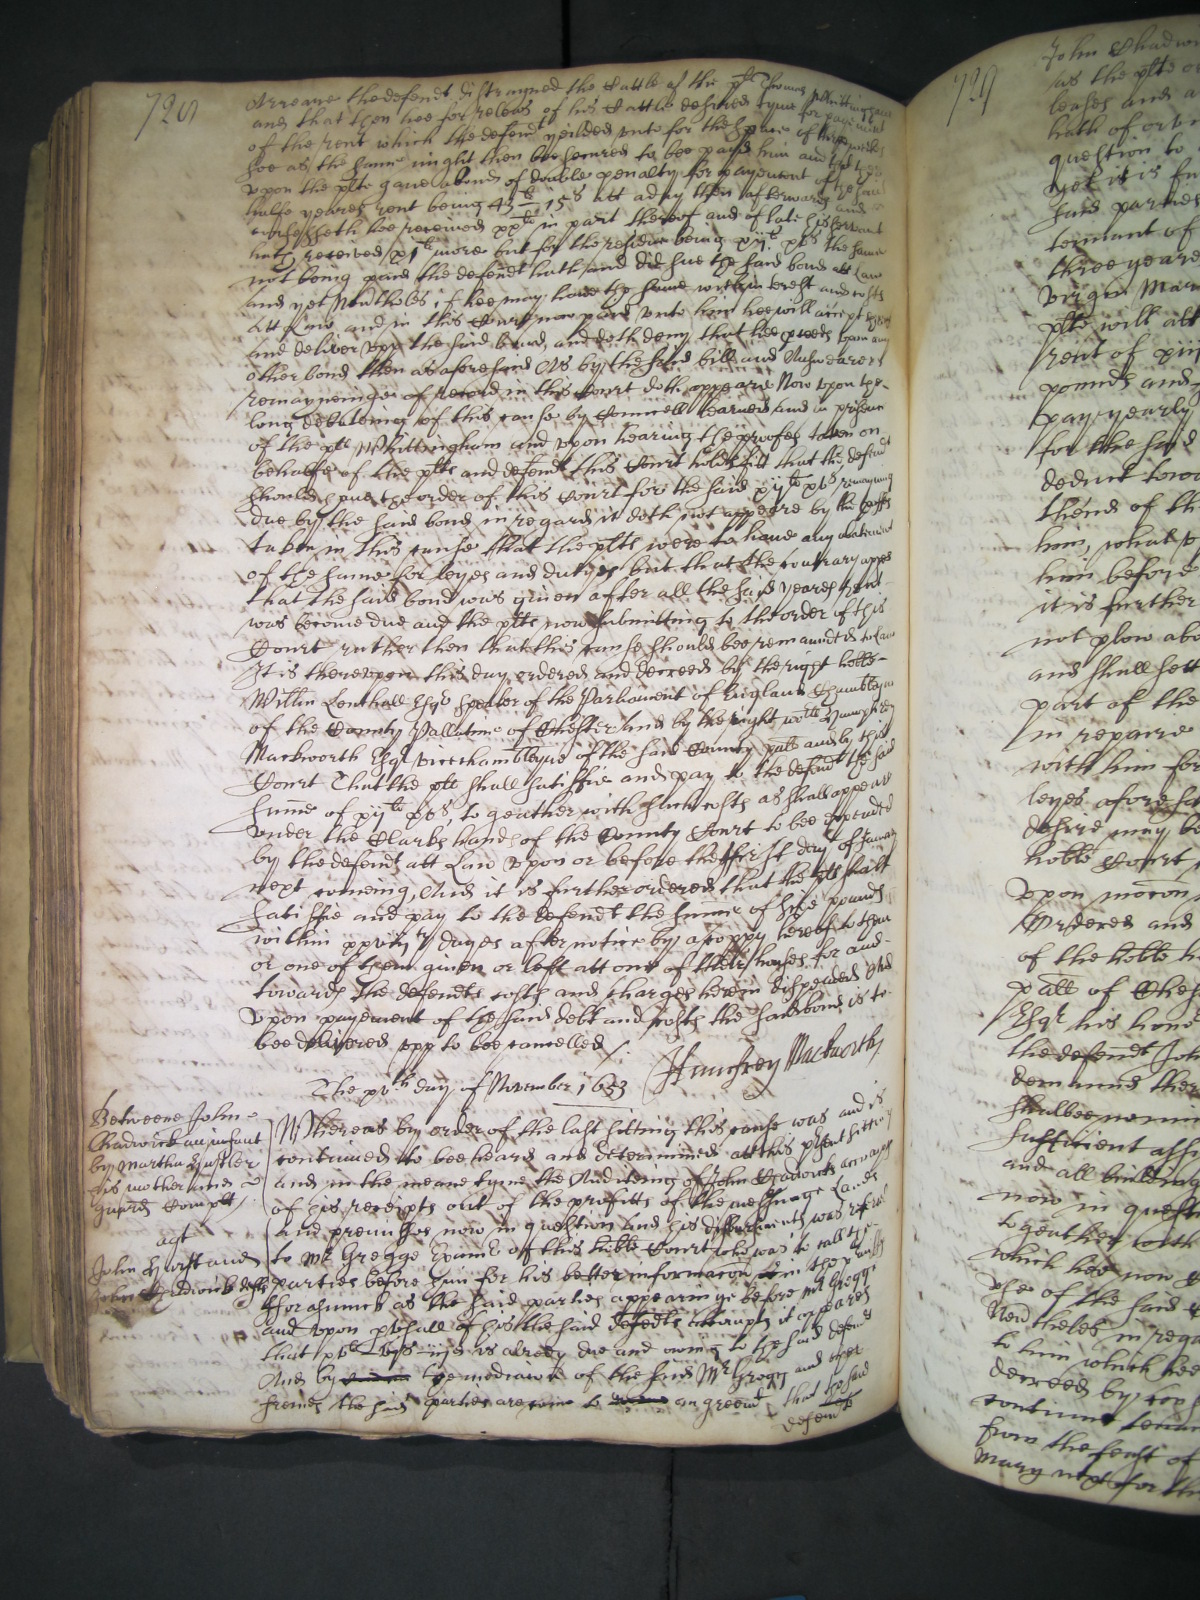 720
Arreare the defendt distrayned the Cattle of the plt Thomas Whittingham
and that then hee for releas of his Cattle desired tyme for paiemt
of the rent which the defendt yeilded unto for the space of three weekes
soe as the same might then bee secured to bee paid him and that
upon the plts gave a bond of double penalty for payement of the said
halfe yeares rent being 43li 15s att a day then afterwards and
confesseth hee received xxli in part thereof and of late his servant
hath received xjli more but for the residue being xijli xvs the same
not being paid the defendt hath and did sue the said bond att Law
and yet Neutheles if hee may have the same with interest and costs
att Law and in this Court now paid unto him hee will accept thereof
and deliver upp the said bond, and doth deny that hee proceeds upon any
other bond then as aforesaid As by the said bill and Answeares
remayneinge of record in this Court doth appeare Now upon the
long debateing of this cause by Councell Learned and in presence
of the plt Whittingham and upon hearing the proofes taken on
behalfe of the plts and defendt this Court holds fitt that the defendt
should have the order of this Court for the said xijli xvs remayning
due by the said bond in regard it doth not appeare by the proofes
taken in this cause that the plts were to have any abatement
of the same for leyes and dutyes but that the contrary appeares
that the said bond was given after all the said yeares rent
was become due and the plts now submitting to the order of this
Court rather then that this cause should bee remaunded to Law
It is thereupon this day ordered and decreed by the right hoble
Willm Lenthall Esqr Speaker of the Parliament of England Chamblayne
of the County Pallatine of Chester And by the right worll Humfrey
Mackworth Esqr vicechamblayne of the said County pallt and by this
Court That the plt shall satisfie and pay to the defendt the said
summe of xijli xvs, to geather with such costs as shall appeare
under the Clarks hand of the County Court to bee expended
by the defendt att Law upon or before the first day of January
next comeing, And it is further ordered that the plts shall
satisfie and pay to the defendt the summe of five pounds
within xxviijty dayes after notice by a coppy hereof to them
or one of them given or left att one of their houses for and
towards the defendts costs and charges herein dispended And
upon payement of the said debt and costs the said bond is to
bee delivered upp to bee cancelled /.
Humfrey Mackworth
The xvth day of November 1653
Betweene John
Chadwick an infant
by Martha
his mother and
guard Complt
agt
John Swift and
John Chadwick defts
Whereas by order of the last sitting this cause was and is
continued to bee heard and determined att this prsent sitting
and in the meane tyme the Auditeing of John Chadwicks accompts
of his receipts out of the profitts of the messuage Lands
and premisses now in question and his disbursmts was referd
to Mr Gregge Examr of this hoble Court who was to call the
parties before him for his better informacon in the
fforasmuch as the said parties appearinge before Mr Gregge
and upon perusall of the said defendts accompts it appeares
that is alredy due and owing to the said defendt
And by the mediacon of the said Mr Gregg and other
freinds the said parties are come to an greemt that the said
defendt
721
John Chadwi
as the plts
leases and a
hath of or in
question to
yet it is fu
said parties
tennant of
three yeares
virgin Mary
plts will att
rent of xiij
pounds and
pay yearly
for the said
deduct tow
thends of th
him, what
him before
it is further
not plow abo
and shall sett
part of the
in repaire
with him for
leyes aforesa
desire may be
hoble Court
Upon mocon
Ordered and
of the hoble
pallt of Ches
Esqr his hono
the defendt John
demaund ther
shalbee nomi
sufficient assi
and all building
now in questi
to geather with
which hee now
use of the said
Neu theles in rega
to him which hee
decreed by
continue tenn
from the feast of
Mary next for the